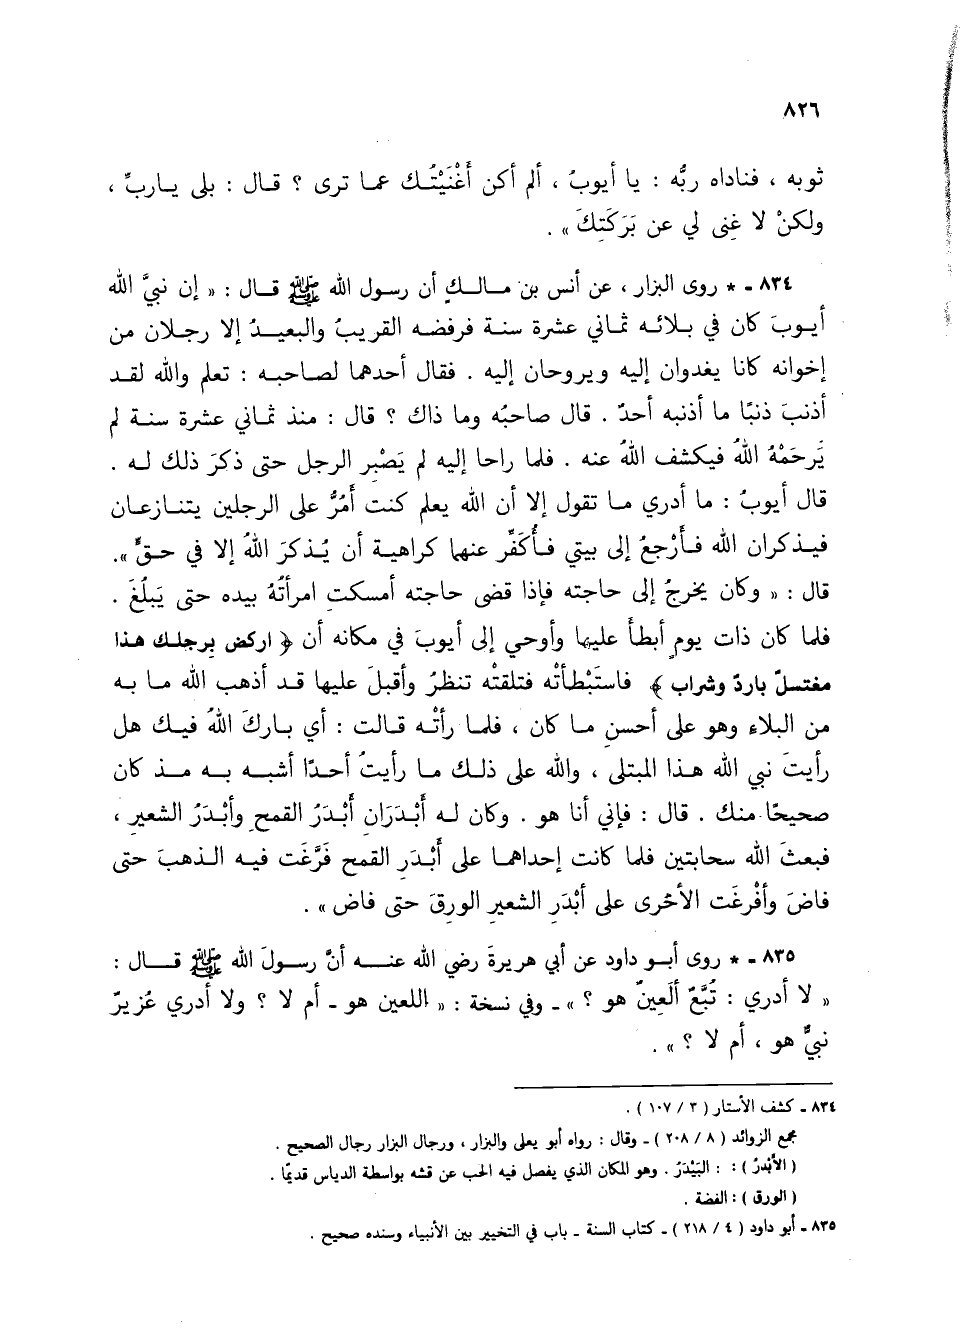 ٨٢٦
ثوبه ، فناداه ربُّه : يا أيوبُ ، ألم أكن أَغْنَيْتُـك عما ترى ؟ قال : بلى يـاربِّ ،
ولكنْ لا غِنى لي عن بَرَكَتِكَ » .
٨٣٤ ـ * روى البزار ، عن أنس بن مـالـكٍ أن رسول الله ﷺ قـال : « إن نبيَّ الله
أيـوبَ كان في بلائـه ثماني عشرة سنـة فرفضـه القريبُ والبعيـدُ إلا رجـلان من
إخوانه كانا يغدوان إليه ويروحان إليه . فقال أحدهما لصاحبـه : تعلم والله لقـد
أذنبَ ذنبًا ما أذنبه أحدٌ . قال صاحبُه وما ذاك ؟ قال : منذ ثماني عشرة سنـة لم
يَرحَمْهُ اللهُ فيكشف اللهُ عنه . فلما راحا إليه لم يَصْبِر الرجل حتى ذكرَ ذلك لـه .
قال أيوبُ : ما أدري مـا تقول إلا أن الله يعلم كنت أَمُرُّ على الرجلين يتنـازعـان
فيـذكران الله فـأَرْجعُ إلى بيتي فـأُكَفِّر عنهما كراهيـة أن يُـذكرَ اللهُ إلا في حـقٍّ ».
قال : « وكان يخرجُ إلى حاجته فإذا قضى حاجته أمسكتِ امرأتُهُ بيده حتى يَبلُغَ .
فلما كان ذات يومٍ أبطأ عليها وأوحي إلى أيوبَ في مكانه أن ﴿ اركض برجلـك هـذا
مغتسلٌ باردٌ وشراب ﴾ فاستَبْطأتْه فتلقتْه تنظرُ وأقبلَ عليها قـد أذهب الله مـا بـه
من البلاء وهو على أحسنِ مـا كان ، فلمـا رأتْـه قـالت : أي بـاركَ اللهُ فيـك هل
رأيتَ نبي الله هـذا المبتلى ، والله على ذلـك مـا رأيتُ أحـدًا أشبـه بـه مـذ كان
صحيحًا منك . قال : فإني أنا هو . وكان لـه أَبْدَرَان أَبْدَرُ القمح وأَبْدَرُ الشعير ،
فبعثَ الله سحابتين فلما كانت إحداهمـا على أَبْـدَرِ القمح فَرَّغَت فيـه الـذهبَ حتى
فاضَ وأفْرغَت الأخرى على أَبْدَرِ الشعيرِ الورِقَ حتى فاض » .
٨٣٥ ـ * روى أبـو داود عن أبي هريرةَ رضي الله عنـه أنَّ رسـولَ الله ﷺ قـال :
« لا أدري : تُبَّعٌ أَلَعِينٌ هو ؟ » ـ وفي نسخة : « اللعين هو ـ أم لا ؟ ولا أدري عُزيرٌ
نبيٌّ هو ، أم لا ؟ » .
٨٣٤ ـ كشف الأستار ( ٣ / ١٠٧ ) .
مجمع الزوائد ( ٨ / ٢٠٨ ) ـ وقال : رواه أبو يعلى والبزار ، ورجال البزار رجال الصحيح .
( الأَبْدرُ ) : : البَيْدَرُ . وهو المكان الذي يفصل فيه الحب عن قشه بواسطة الدياس قديمًا .
( الورق ) : الفضة .
٨٣٥ ـ أبو داود ( ٤ / ٢١٨ ) ـ كتاب السنة ـ باب في التخيير بين الأنبياء وسنده صحيح .